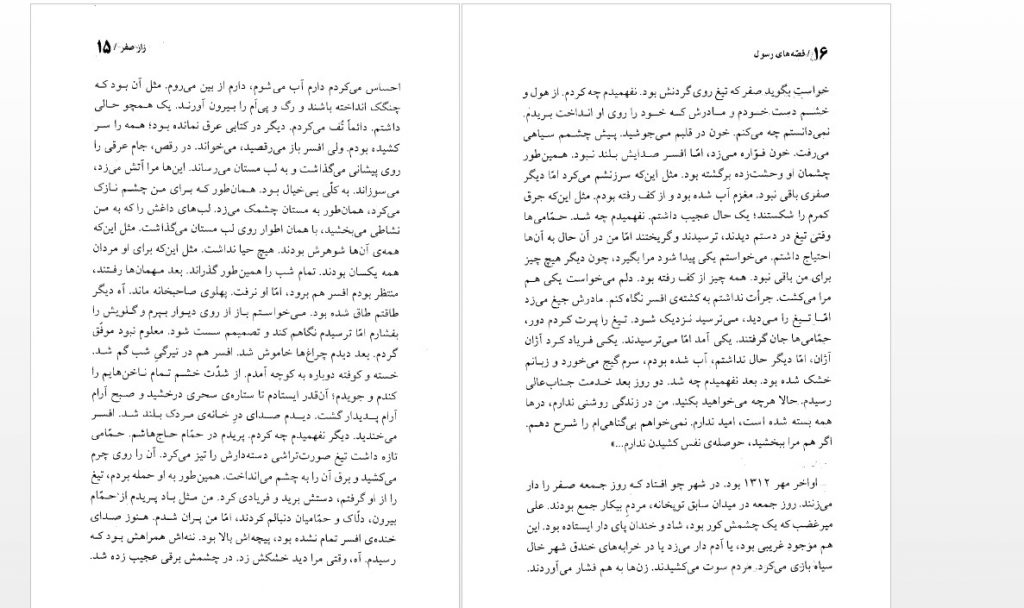 زار صفر / ۱۵
احساس می‌کردم دارم آب می‌شوم، دارم از بین می‌روم. مثل آن بود که
چنگک انداخته باشند و رگ و پی‌ام را بیرون آورند. یک همچو حالی
داشتم. دائماً تُف می‌کردم. دیگر در کتابی عرق نمانده بود؛ همه را سر
کشیده بودم. ولی افسر باز می‌رقصید، می‌خواند. در رقص، جام عرقی را
روی پیشانی می‌گذاشت و به لب مستان می‌رساند. این‌ها مرا آتش می‌زد،
می‌سوزاند. به کلّی بی‌خیال بود. همان‌طور که برای من چشم نازک
می‌کرد، همان‌طور به مستان چشمک می‌زد. لب‌های داغش را که به من
نشاطی می‌بخشید، با همان اطوار روی لب مستان می‌گذاشت. مثل این‌که
همه‌ی آن‌ها شوهرش بودند. هیچ حیا نداشت. مثل این‌که برای او مردان
همه یکسان بودند. تمام شب را همین‌طور گذراند. بعد مهمان‌ها رفتند،
منتظر بودم افسر هم برود، امّا او نرفت. پهلوی صاحبخانه ماند. آه دیگر
طاقتم طاق شده بود. می‌خواستم باز از روی دیوار بپرم و گلویش را
بفشارم امّا ترسیدم نگاهم کند و تصمیمم سست شود. معلوم نبود موفّق
گردم. بعد دیدم چراغ‌ها خاموش شد. افسر هم در تیرگیِ شب گم شد.
خسته و کوفته دوباره به کوچه آمدم. از شدّت خشم تمام ناخن‌هایم را
کندم و جویدم؛ آن‌قدر ایستادم تا ستاره‌ی سحری درخشید و صبح آرام
آرام پدیدار گشت. دیدم صدای درِ خانه‌ی مردک بلند شد. افسر
می‌خندید. دیگر نفهمیدم چه کردم. پریدم در حمّام حاج‌هاشم. حمّامی
تازه داشت تیغ صورت‌تراشی دسته‌دارش را تیز می‌کرد. آن را روی چرم
می‌کشید و برق آن را به چشم می‌انداخت. همین‌طور به او حمله بردم، تیغ
را از او گرفتم، دستش برید و فریادی کرد. من مثل باد پریدم از حمّام
بیرون، دلّاک و حمّامیان دنبالم کردند، امّا من پران شدم. هنوز صدای
خنده‌ی افسر تمام نشده بود، پیچه‌اش بالا بود. ننه‌اش همراهش بود که
رسیدم. آه، وقتی مرا دید خشکش زد. در چشمش برقی عجیب زده شد.
۱۶ / قصّه‌های رسول
خواست بگوید صفر که تیغ روی گردنش بود. نفهمیدم چه کردم. از هول و
خشم دست خودم و مادرش که خود را روی او انداخت بریدم.
نمی‌دانستم چه می‌کنم. خون در قلبم می‌جوشید. پیش چشمم سیاهی
می‌رفت. خون فوّاره می‌زد، امّا افسر صدایش بلند نبود. همین‌طور
چشمان او وحشت‌زده برگشته بود. مثل این‌که سرزنشم می‌کرد امّا دیگر
صفری باقی نبود. مغزم آب شده بود و از کف رفته بودم. مثل این‌که جرق
کمرم را شکستند؛ یک حال عجیب داشتم. نفهمیدم چه شد. حمّامی‌ها
وقتی تیغ در دستم دیدند، ترسیدند و گریختند امّا من در آن حال به آن‌ها
احتیاج داشتم. می‌خواستم یکی پیدا شود مرا بگیرد، چون دیگر هیچ چیز
برای من باقی نبود. همه چیز از کف رفته بود. دلم می‌خواست یکی هم
مرا می‌کشت. جرأت نداشتم به کشته‌ی افسر نگاه کنم. مادرش جیغ می‌زد
امّا تیغ را می‌دید، می‌ترسید نزدیک شود. تیغ را پرت کردم دور،
حمّامی‌ها جان گرفتند. یکی آمد امّا می‌ترسیدند. یکی فریاد کرد آژان
آژان، امّا دیگر حال نداشتم، آب شده بودم، سرم گیج می‌خورد و زبانم
خشک شده بود. بعد نفهمیدم چه شد. دو روز بعد خدمت جناب‌عالی
رسیدم. حالا هرچه می‌خواهید بکنید. من در زندگی روشنی ندارم، درها
همه بسته شده است، امید ندارم. نمی‌خواهم بی‌گناهی‌ام را شرح دهم.
اگر هم مرا ببخشید، حوصله‌ی نفس کشیدن ندارم...»
اواخر مهر ۱۳۱۲ بود. در شهر چو افتاد که روز جمعه صفر را دار
می‌زنند. روز جمعه در میدان سابق توپخانه، مردم بیکار جمع بودند. علی
میرغضب که یک چشمش کور بود، شاد و خندان پای دار ایستاده بود. این
هم موجود غریبی بود، یا آدم دار می‌زد یا در خرابه‌های خندق شهر خال
سیاه بازی می‌کرد. مردم سوت می‌کشیدند. زن‌ها به هم فشار می‌آوردند.